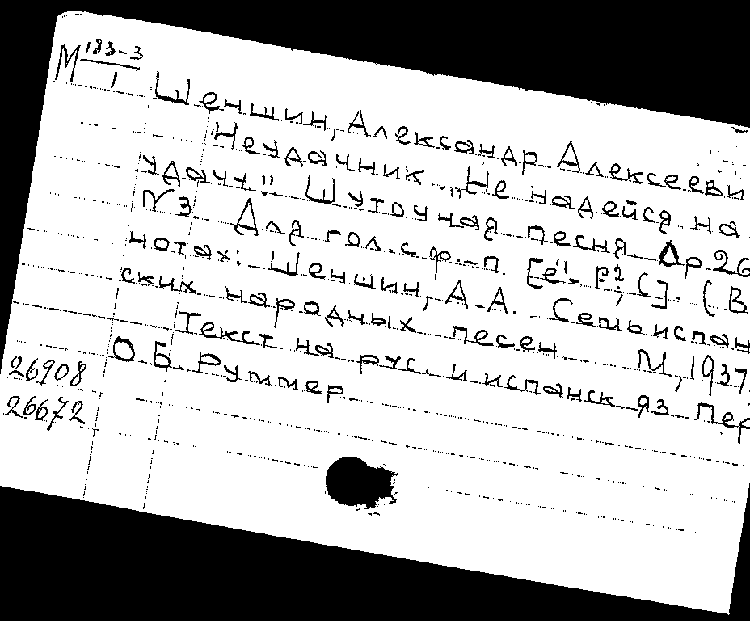 М 183-3/1
Шеншин, Александр Алексееви
Неудачник. „Не надейся на
удачу!!" Шуточная песня Ор.26
№3 Для гол. с ф.-п. [е¹-f²; C]. (В
нотах: Шеншин, А.А. Семь испан
ских народных песен М., 1937.
Текст на рус. и испанск яз Пер
О.Б. Руммер
26908
26672